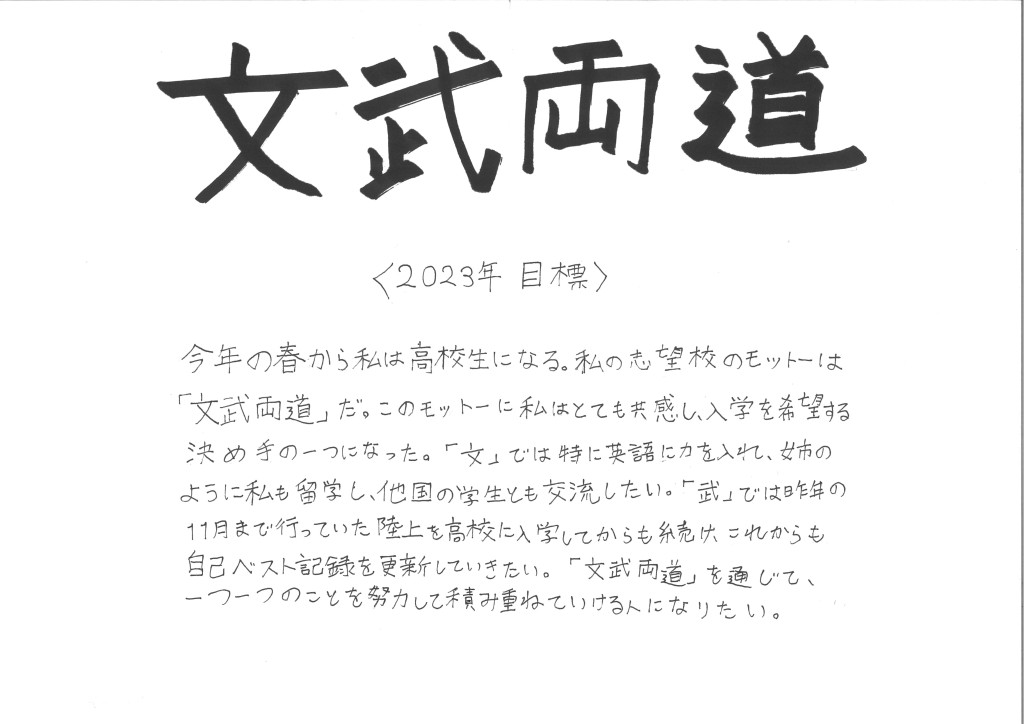 文武両道
〈2023年 目標〉
今年の春から私は高校生になる。私の志望校のモットーは
「文武両道」だ。このモットーに私はとても共感し、入学を希望する
決め手の一つになった。「文」では特に英語に力を入れ、姉の
ように私も留学し、他国の学生とも交流したい。「武」では昨年の
11月まで行っていた陸上を高校に入学してからも続け、これからも
自己ベスト記録を更新していきたい。「文武両道」を通じて、
一つ一つのことを努力して積み重ねていける人になりたい。